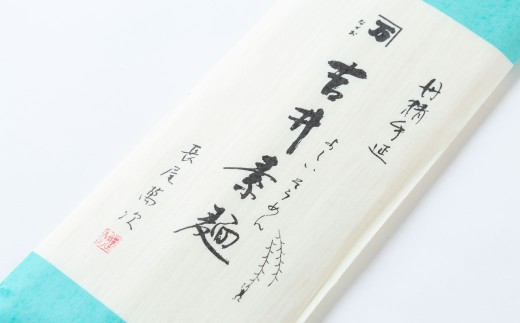 丹精手延
万
ながお
吉井素麺
よしいそうめん
長尾萬次